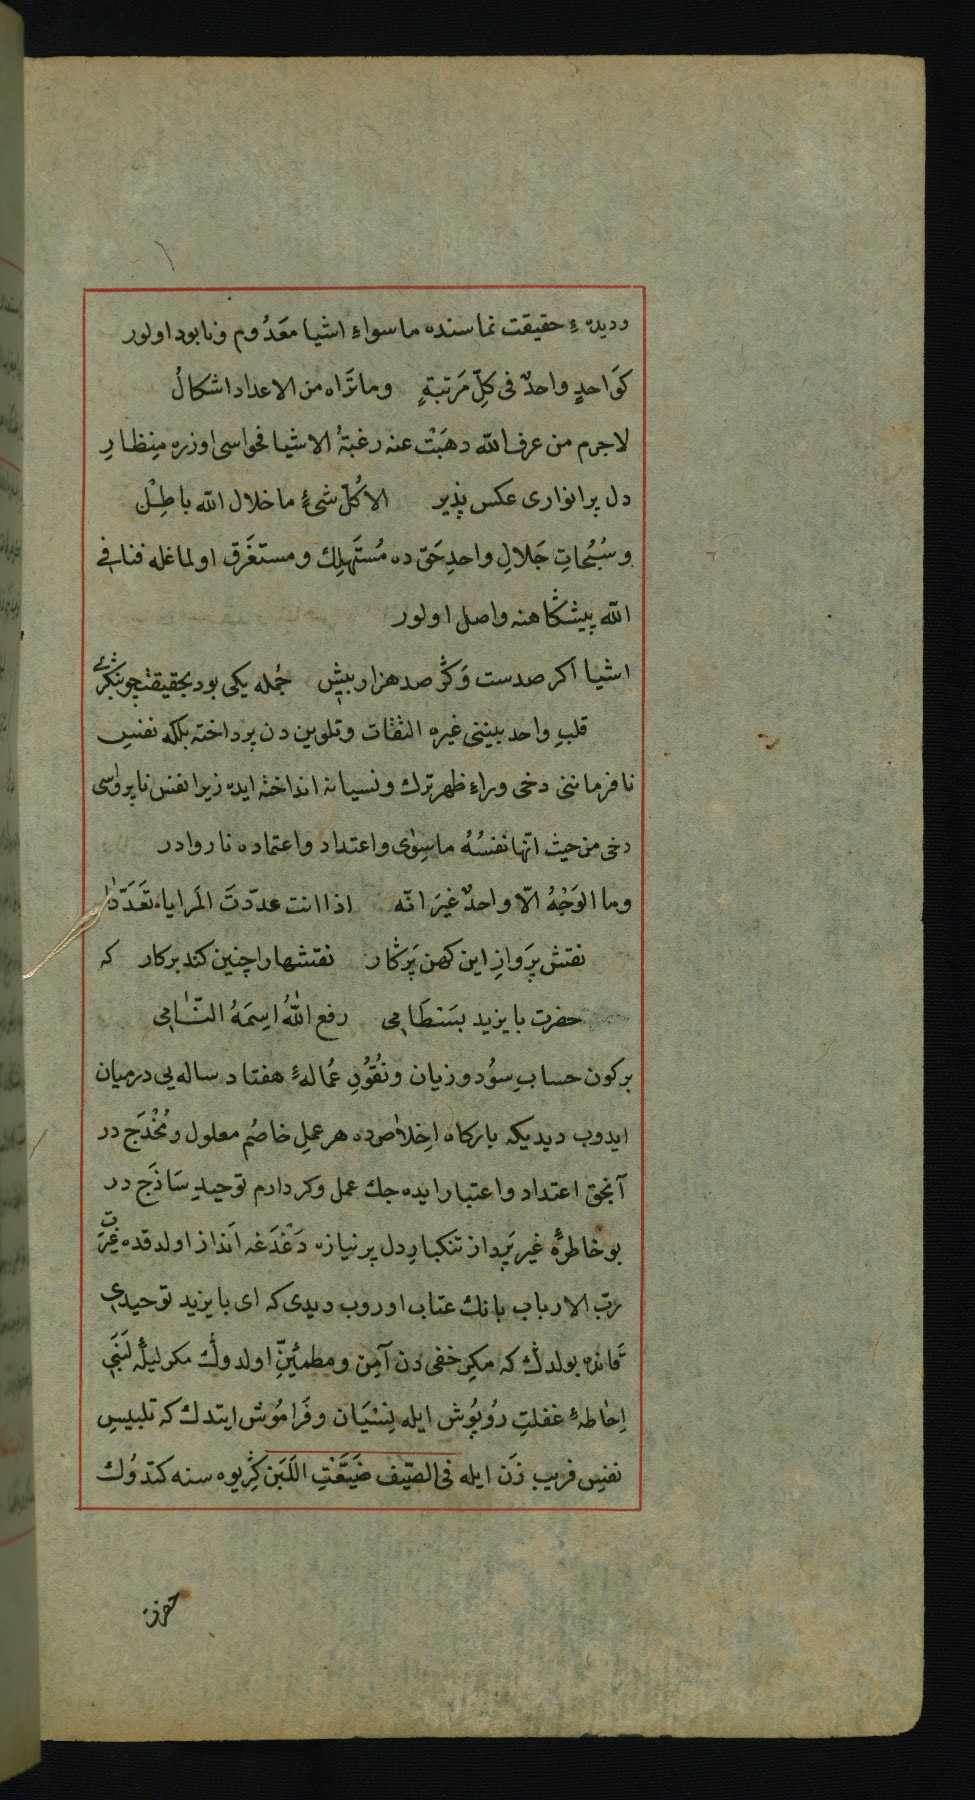 ودیدهٔ حقیقت نماسنده ماسواء اشیا معَدُوم ونابود اولور
کوَاحدٍ واحدٌ فی کلِّ مَرتبةٍ وماتَراه من الاعداد اشکالُ
لاجرم من عرف الله دهَبَتْ عنه رغبةُ الاشیا فحواسی اوزره مِنظارِ
دل پرانواری عکس پذیر الا کُلّ شئٍ ماخلال الله باطِلن
وسُبُحاتِ جَلالِ واحدِ حَقّ ده مُستَهلِك ومستغَرَق اولماغله فنا فی
الله پیشکاهنه واصل اولور
اشیا اکر صدست وَکر صد هزار بیش جُمله یکی بود بحقیقت چو بنکری
قلبِ واحد بیننی غیره التفات وتلوین دن پرداخته بلکه نفسِ
نافرماننی دخی وراءِ ظهر ترك ونسیانه انداخته ایده زیرا نفس ناپرواسی
دخی من حیث انّها نفسُهُ ماسِوٰی واعتداد واعتماده ناروادر
وما الوَجْهُ الّا واحدٌ غیرَ انّه اذا انت عدّدتَ المَرایاء تعَدَّدا
نقش پَروازِ این کهن پَرکار نقشهارا چنین کند برکار که
حضرت بایزید بسَنطَامی رفع اللهُ اسِمَهُ النّامی
برکون حسابِ سوُد وزیان ونُقوُدِ عُمالهٔ هفتاد ساله یی درمیان
ایدوب دیدیکه بارکاه اخِلاص ده هر عملِ خاصُم معلول ومُخْدَج در
آنجق اعتداد واعتبار ایده جك عمل وکردارم توحیدِ سَاذَج در
بو خاطرهٔ غیر پَرداز تنکبارِ دل پرنیازه دَغْدَغه اَنداز اولدقده غیرت
ربّ الارباب بانك عتاب اوروب دیدی که ای بایزید توحیدی
قانده بولدڭ که مکرِ خفی دن آمِن ومطمئِنّ اولدوڭ مکر لیلهٔ لَبَنی
اِحٰاطهٔ غفلتِ رُوپُوش ایله نِسْیَان وفَرامُوش ایتدك که تلبیسِ
نفسِ فریب زَن ایله فی الصّیف ضَیَّعْتِ اللَبَن کِریوه سنه کتدوُك
حضرت